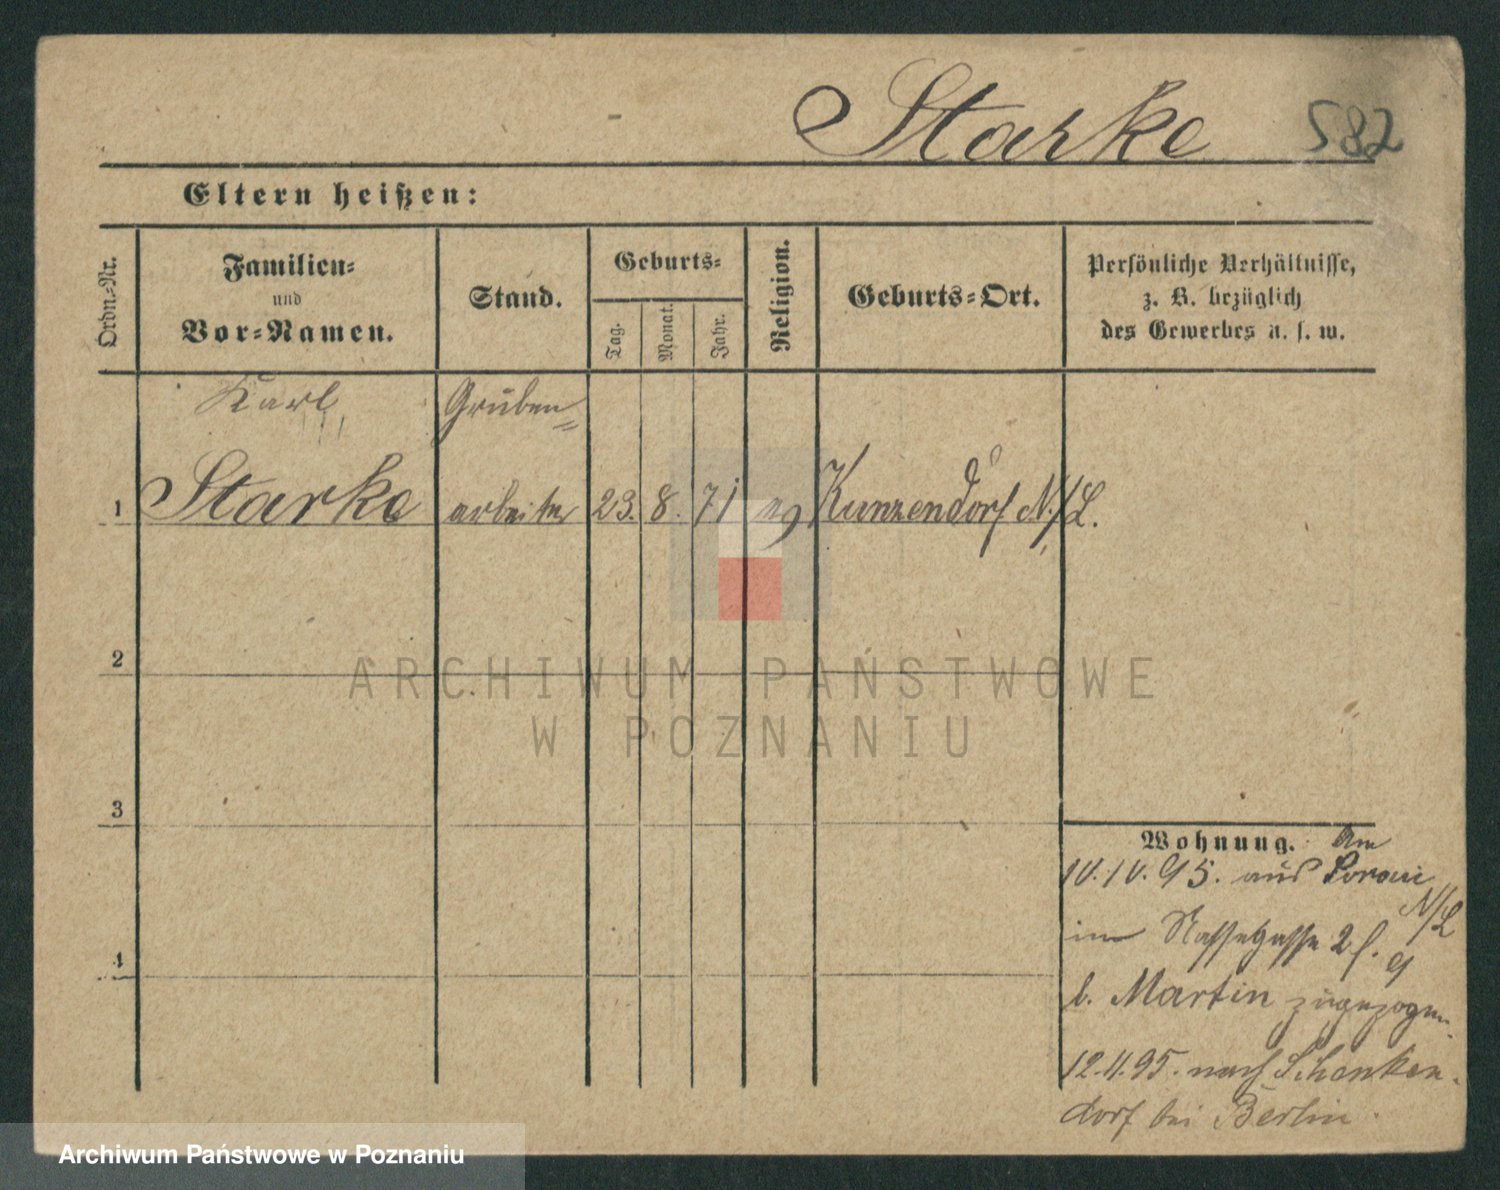 Starke 582
Eltern heißen:
Ordn.-Nr.
Familien-
und
Vor-Namen.
Stand.
Geburts-
Tag.
Monat.
Jahr.
Religion.
Geburts-Ort.
Persönliche Verhältnisse,
z. B. bezüglich
des Gewerbes u. s. w.
Karl Gruben=
1 Starke arbeiter 23. 8. 71 eg Kunzendorf N./L.
2
3
4
Wohnung. Am
10.10.95. aus Sorau
N/L
in 2
b. Martin zugezogen.
12.11.95. nach Schenken-
dorf bei Berlin.
ARCHIWUM PAŃSTWOWE
W POZNANIU
Archiwum Państwowe w Poznaniu